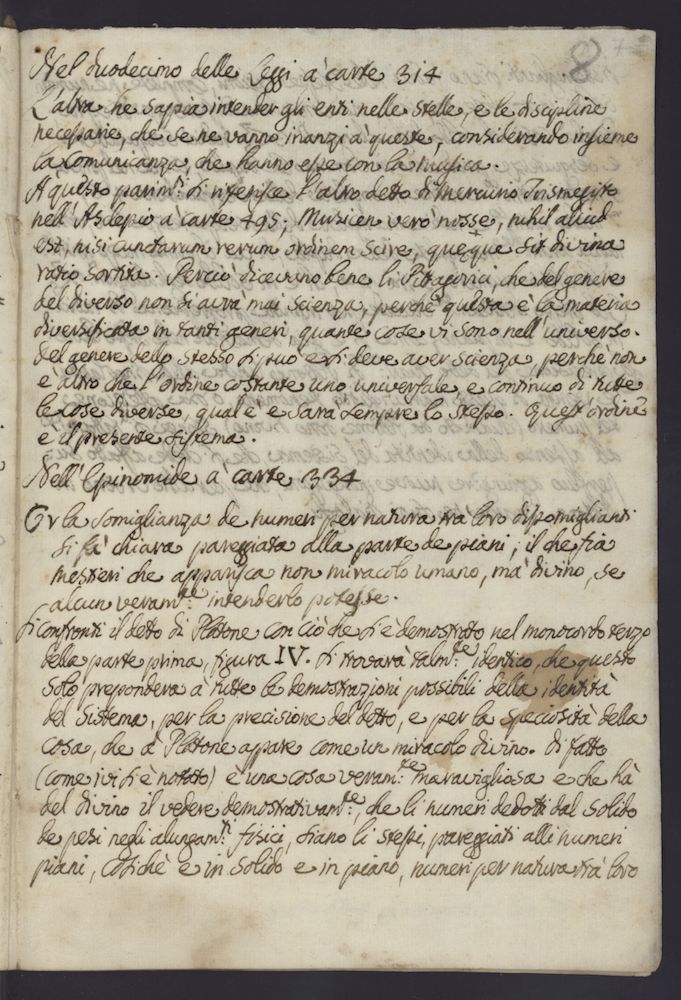 8
Nel duodecimo delle Leggi à carte 314
L'altra he sappia intender gli enti nelle stelle, e le discipline
necessarie, che se ne vanno inanzi à queste, considerando insieme
la Comunicanza, che hanno esse con la musica.
A questo parim.ti si riferisce l'altro detto di Mercurio Trismegisto
nell'Asclepio à carte 495; Musicen verò nosse, nihil aliud
est, nisi cunctarum rerum ordinem scire, quęque sit divina
ratio sortita. Perciò dicevano bene li Pittagorici, che del genere
del diverso non si avrà mai scienza, perchè questa è la materia
diversificata in tanti generi, quante cose vi sono nell'universo.
Del genere dello stesso si può e si deve aver scienza, perchè non
è altro che l'ordine costante uno universale, e continuo di tutte
le cose diverse, qual'è e sarà sempre lo stesso. Quest'ordine
e il presente sistema.
Nell'Epinomide à carte 334
Or la somiglianza de numeri per natura tra loro dissomiglianti
si fà chiara pareggiata alla parte de piani; il che fia
mestieri che apparisca non miracolo umano, mà divino, se
alcun veram.te intenderlo potesse.
Si confronti il detto di Platone con ciò che si è demostrato nel monocordo terzo
della parte prima, figura IV. Si trovarà talm.te identico, che questo
solo prepondera à tutte le demostrazioni possibili della identità
del Sistema, per la precisione del detto, e per la speciosità della
cosa, che à Platone appare come un miracolo divino. Di fatto
(come ivi si è notato) è una cosa veram.te maravigliosa e che hà
del divino il vedere demostrativam.te, che li numeri dedotti dal solido
de pesi negli alungam.ti fisici, siano li stessi, pareggiati alli numeri
piani, cosichè e in solido e in piano, numeri per natura trà loro